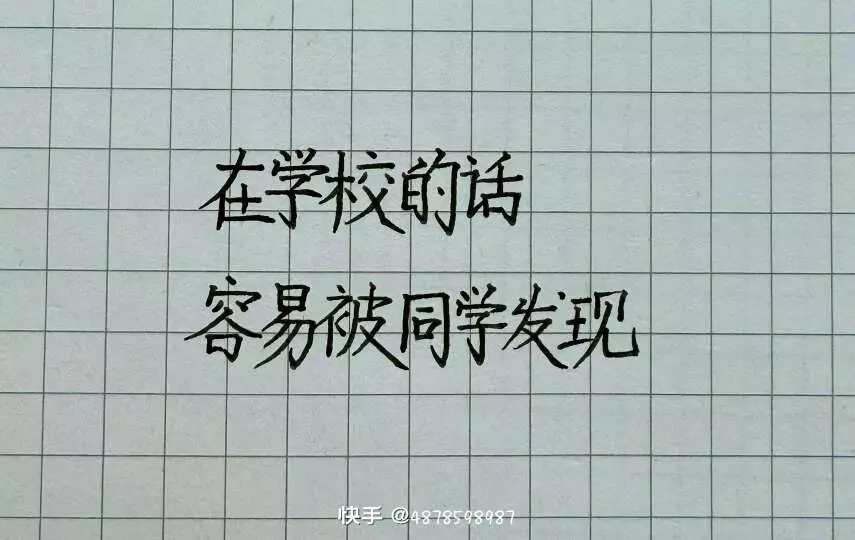 在学校的话
容易被同学发现
快手 @4878598987